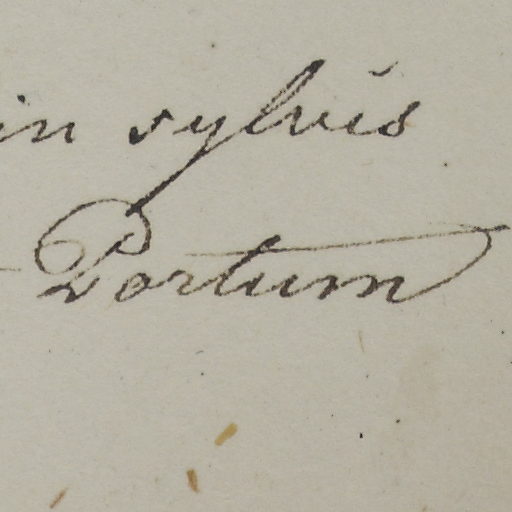 in sylvis
Portum